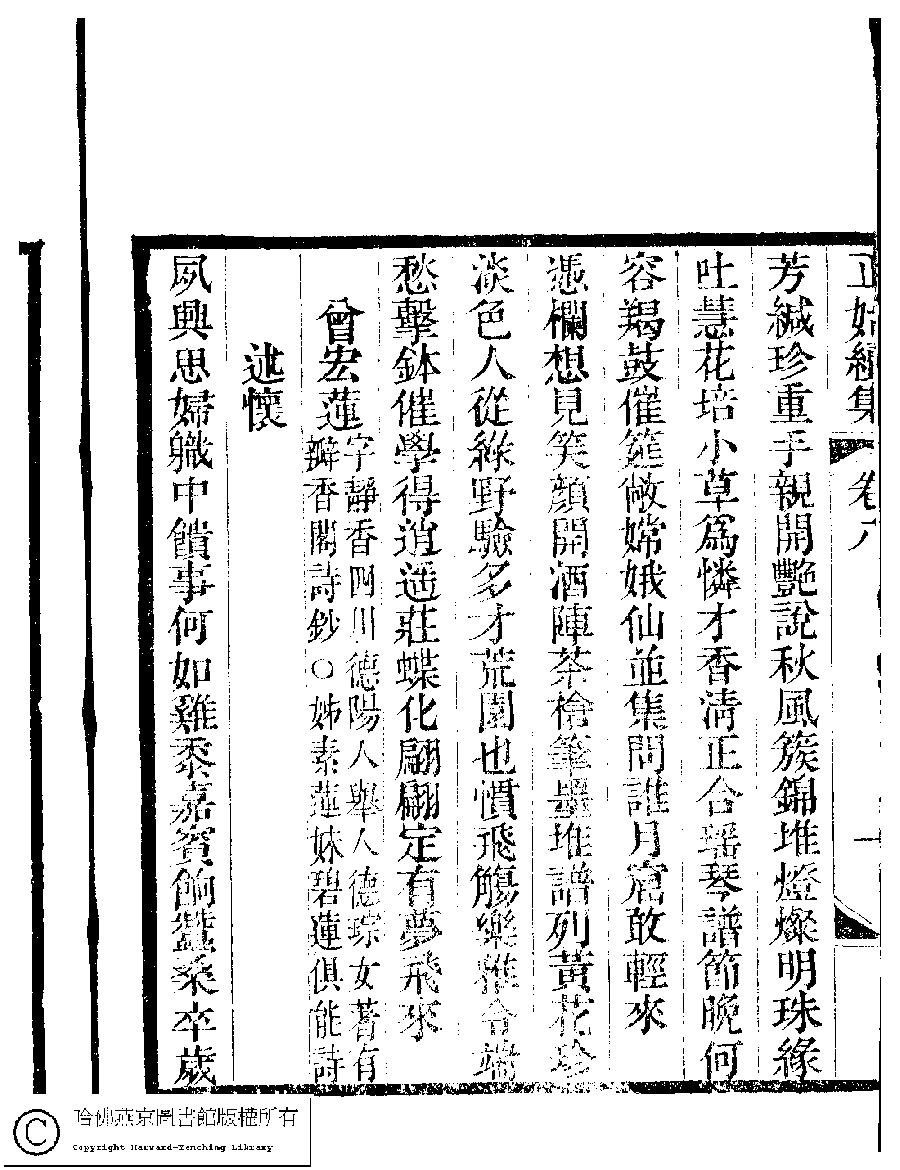 正始續集 卷八
芳緘珍重手親開艷說秋風簇錦堆燈燦明珠緣
吐慧花培小草爲憐才香淸正合瑶琴譜節晚何
容羯鼓催筵敞嫦娥仙並集問誰月窟敢輕來
憑欄想見笑顏開酒陣茶槍筆壘堆譜列黃花珍
淡色人從綠野驗多才荒園也慣飛觴樂雅合
愁擊鉢催學得逍遥莊蝶化翩翩定有夢飛來
曾宏蓮
字靜香四川德陽人舉人德琮女著有
瓣香閣詩鈔○姊素蓮妹碧蓮俱能詩
述懷
夙興思婦職中饋事何如雞黍嘉賓餉蠶桑卒歲
哈佛燕京圖書館版權所有
Copyright Harvard-Yenching Library